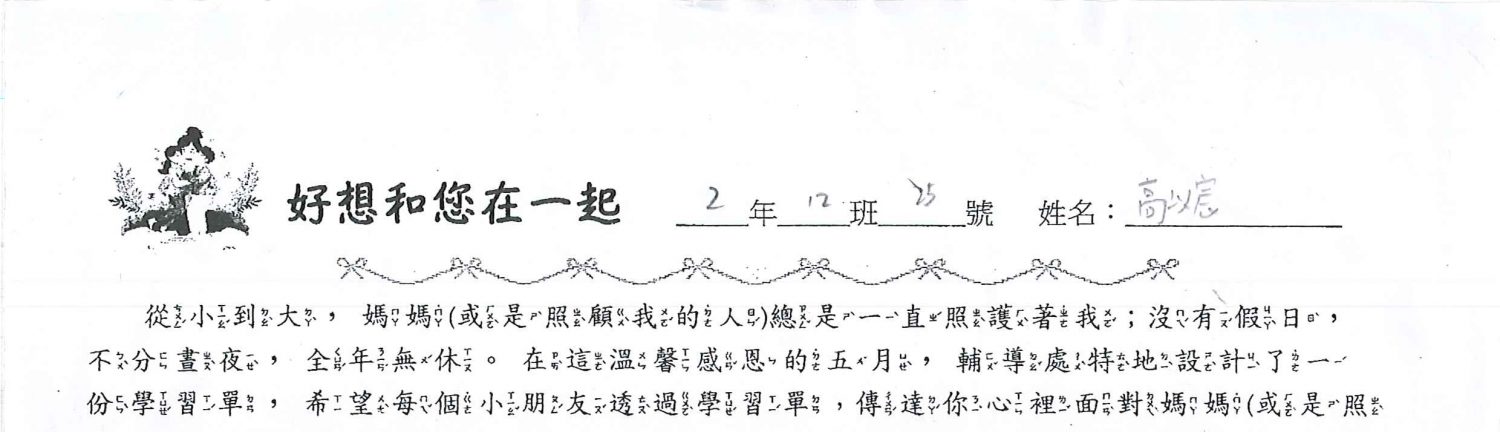 好想和您在一起 2 年 12 班 25 號 姓名：高以宸
從小到大，媽媽(或是照顧我的人)總是一直照護著我；沒有假日，
不分晝夜，全年無休。在這溫馨感恩的五月，輔導處特地設計了一
份學習單，希望每個小朋友透過學習單，傳達你心裡面對媽媽(或是照